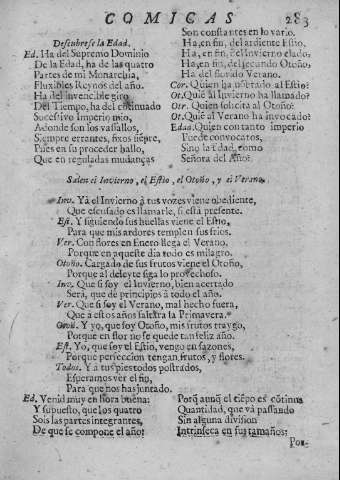 COMICAS
283
Descubrese la Edad.
Ed. Ha del Supremo Dominio
De la Edad, ha de las quatro
Partes de mi Monarchia,
Fluxibles Reynos del año.
Ha del invencible giro
Del Tiempo, ha del continuado
Sucesivo Imperio mio,
Adonde son los vasallos,
Siempre errantes, fixos siẽpre,
Pues en su proceder hallo,
Que en reguladas mudanças
Son constantes en lo vario.
Ha, en fin, del ardiente Estio,
Ha, en fin, del Invierno elado,
Ha, en fin, del fecundo Otoño,
Ha del florido Verano.
Cor. Quien ha nõbrado al Estio?
Ot. Quiẽ al Invierno ha llamado?
Otr. Quien solicita al Otoño?
Ot. Quiẽ al Verano ha invocado?
Edad. Quien con tanto imperio
Puede convocatos,
Sino la Edad, como
Señora del Año?
Salen el Invierno, el Estio, el Otoño, y el Verano.
Inv. Yà el Invierno à tus vozes viene obediente,
Que escusado es llamarle, si està presente.
Est. Y siguiendo sus huellas viene el Estio,
Para que mis ardores templen sus frios.
Ver. Con flores en Enero llega el Verano,
Porque en aqueste dia todo es milagro.
Otoño. Cargado de sus frutos viene el Otoño,
Porque al deleyte siga lo provechoso.
Inv. Que si soy el Invierno, bien acertado
Serà, que de principios à todo el año.
Ver. Que si soy el Verano, mal hecho fuera,
Que à estos años faltàra la Primavera.
Otoñ. Y yo, que soy Otoño, mis frutos traygo,
Porque en flor no se quede tan feliz año.
Est. Yo, que soy el Estio, vengo en sazones,
Porque perfeccion tengan, frutos, y flores.
Todos. Y à tus pies todos postrados,
Esperamos ver el fin,
Para que nos has juntado.
Ed. Venid muy en hora buena:
Y supuesto, que los quatro
Sois las partes integrantes,
De que se compone el año:
Porq̃ aunq̃ el tiẽpo es cõtinua
Quantidad, que và passando
Sin alguna division
Intrinseca en sus tamaños:
Por-